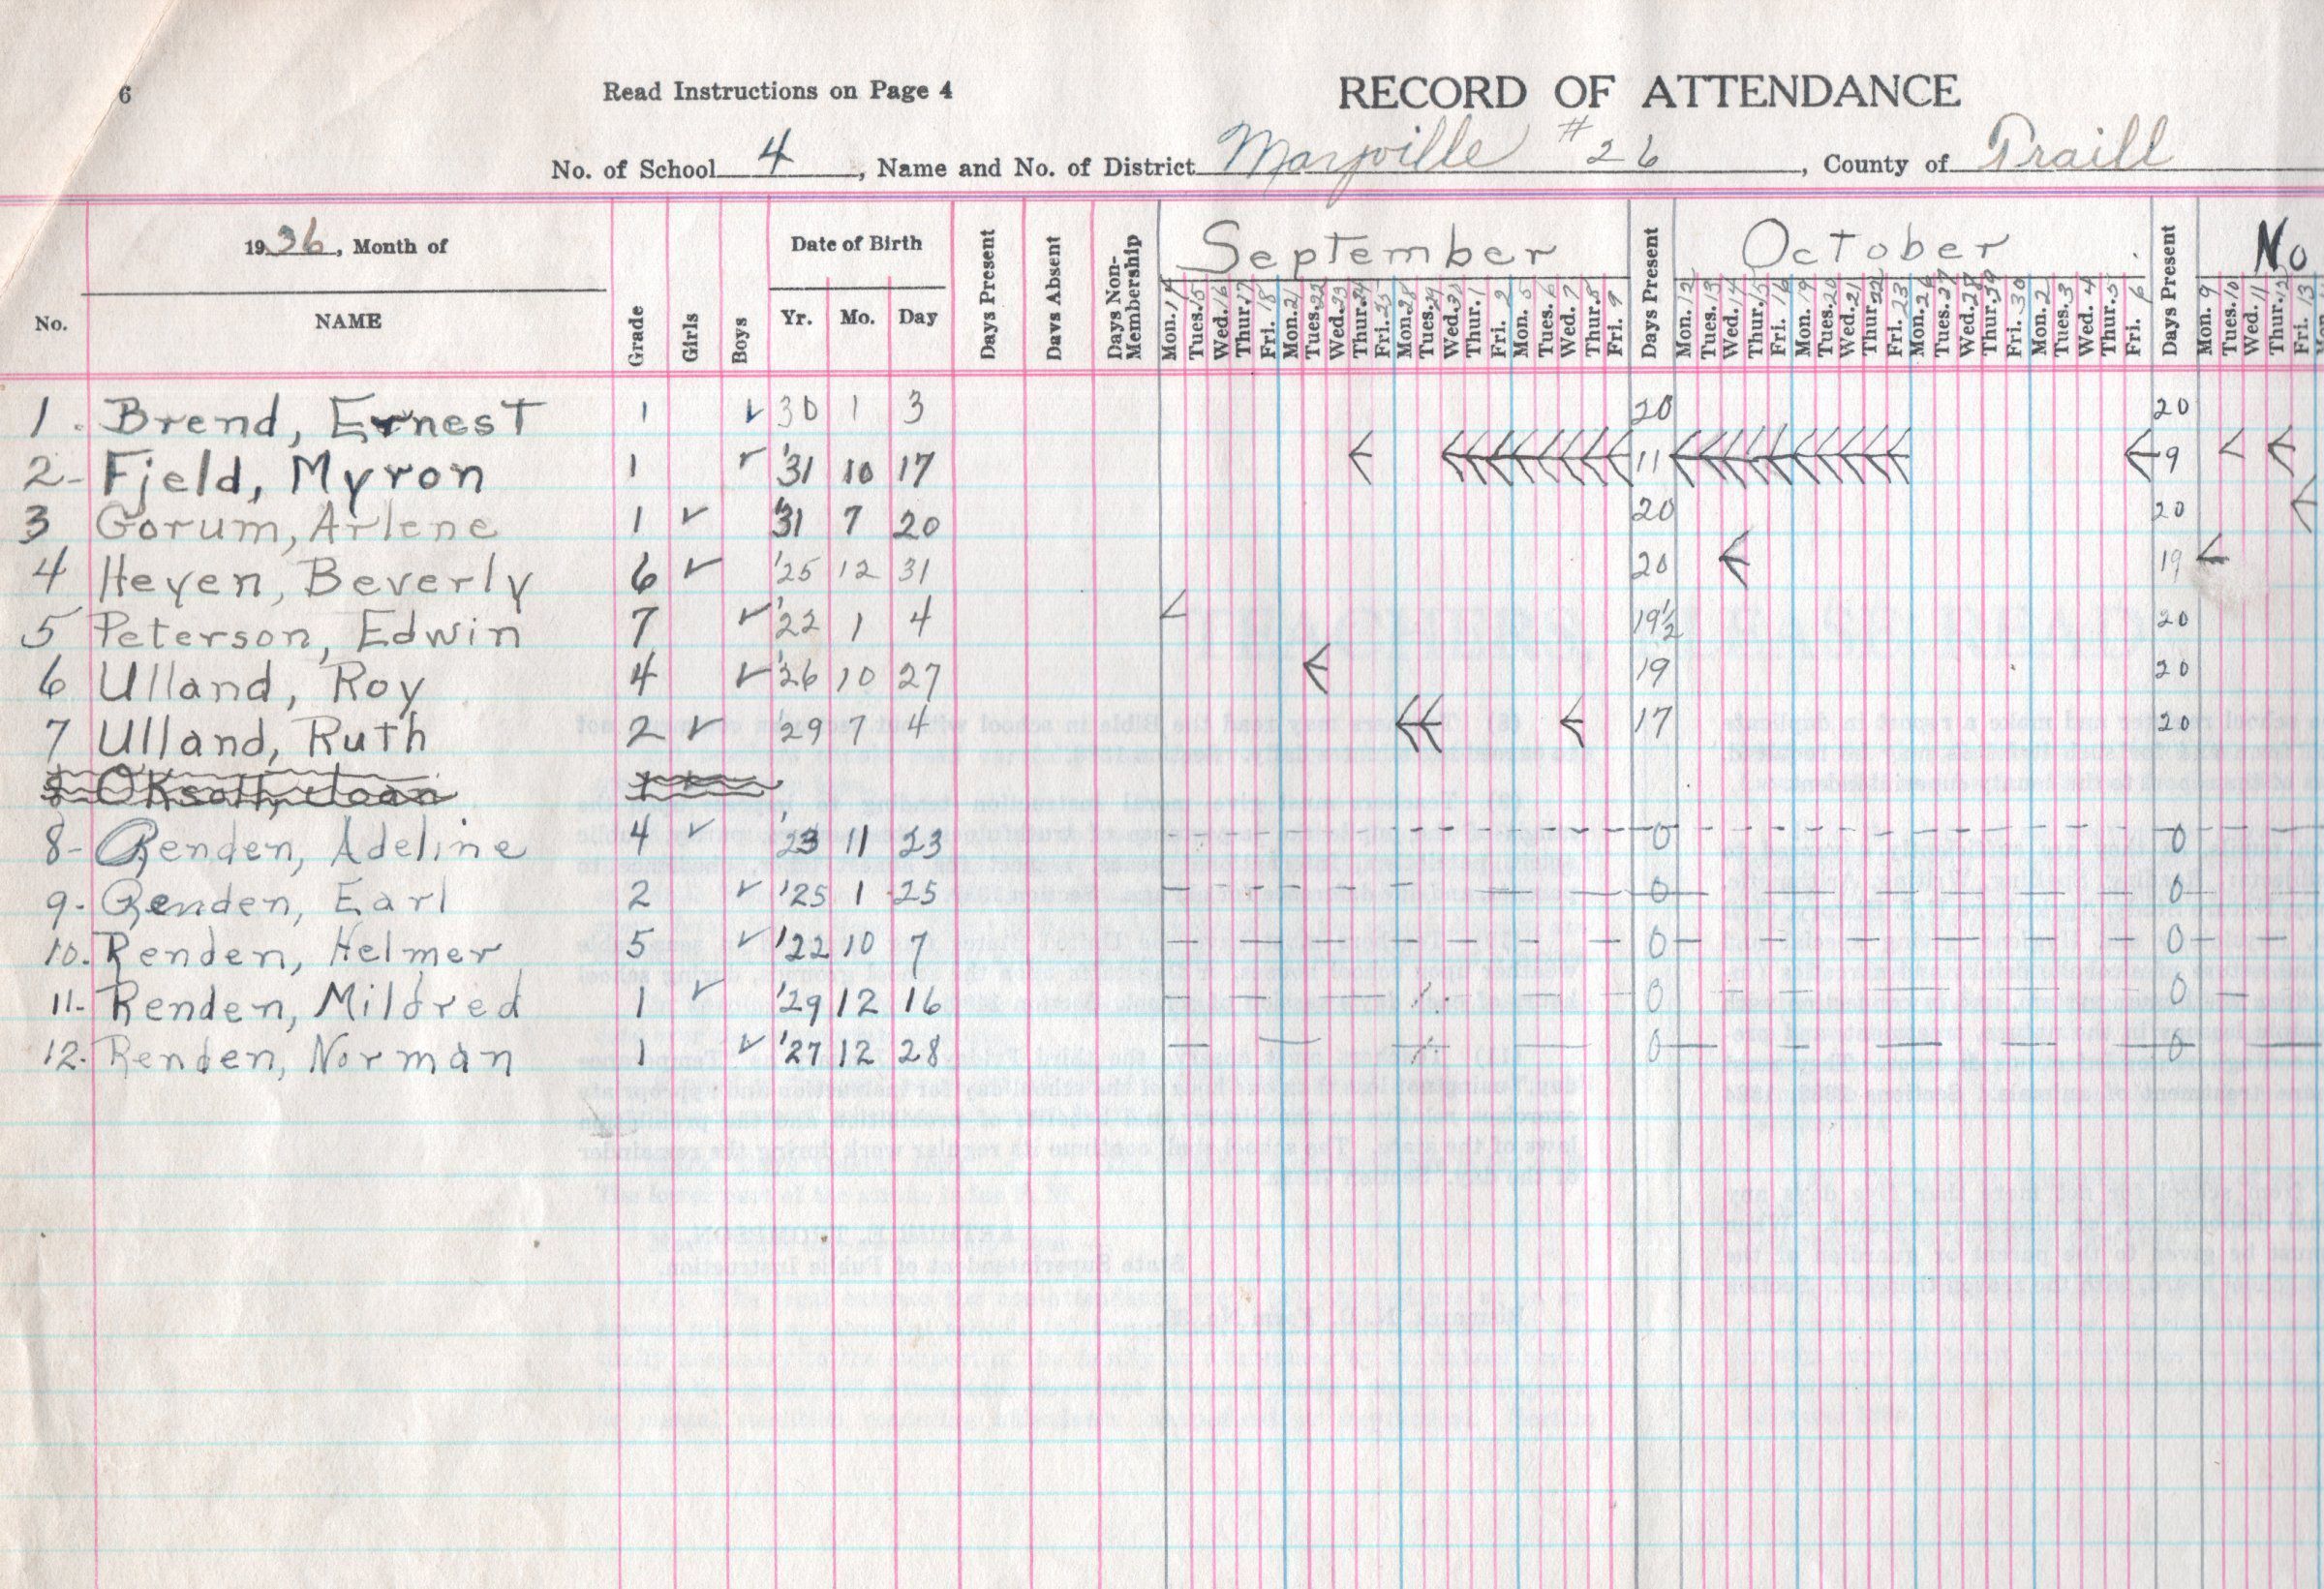 6
Read Instructions on Page 4
RECORD OF ATTENDANCE
No. of School 4, Name and No. of District Mayville #26, County of Traill
1936, Month of
Date of Birth
September
October
No
No. NAME Grade Girls Boys Yr. Mo. Day Days Present Days Absent Days Non-Membership
Mon. 14 Tues. 15 Wed. 16 Thur. 17 Fri. 18 Mon. 21 Tues. 22 Wed. 23 Thur. 24 Fri. 25 Mon. 28 Tues. 29 Wed. 30 Thur. 1 Fri. 2 Mon. 5 Tues. 6 Wed. 7 Thur. 8 Fri. 9 Days Present Mon. 12 Tues. 13 Wed. 14 Thur. 15 Fri. 16 Mon. 19 Tues. 20 Wed. 21 Thur. 22 Fri. 23 Mon. 26 Tues. 27 Wed. 28 Thur. Fri. 30 Mon. 2 Tues. 3 Wed. 4 Thur. 5 Fri. 6 Days Present Mon. 9 Tues. 10 Wed. 11 Thur. 12 Fri. 13
1. Brend, Ernest 1 ✓ 30 1 3 20 20
2- Fjeld, Myron 1 ✓ '31 10 17 11 9
3 Gorum, Arlene 1 ✓ '31 7 20 20 20
4 Heyen, Beverly 6 ✓ '25 12 31 20 19
5 Peterson, Edwin 7 ✓ '22 1 4 19½ 20
6 Ulland, Roy 4 ✓ '26 10 27 19 20
7 Ulland, Ruth 2 ✓ '29 7 4 17 20
8- Renden, Adeline 4 ✓ '23 11 23 0 0
9- Renden, Earl 2 ✓ '25 1 25 0 0
10. Renden, Helmer 5 ✓ '22 10 7 0 0
11- Renden, Mildred 1 ✓ '29 12 16 0 0
12- Renden, Norman 1 ✓ '27 12 28 0 0